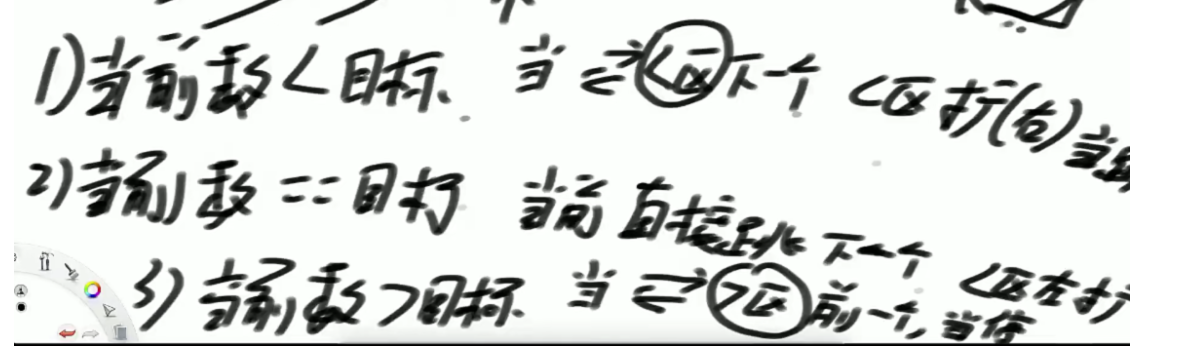 1)当前数<目标 当⇄<区下一个 <区扩(右)当跳
2)当前数==目标 当前直接跳下一个
3)当前数>目标 当⇄>区前一个,当停 <区左扩